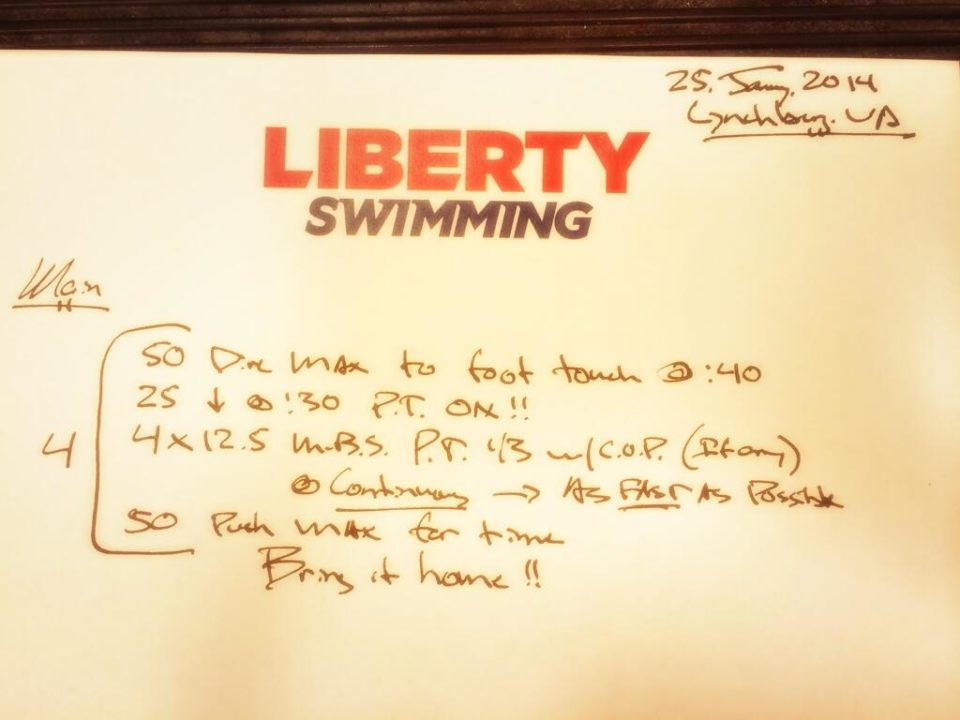 25. Jany. 2014
Lynchburg. VA
LIBERTY
SWIMMING
Main
50 Dive MAX to foot touch @ :40
25 ↓ @ :30 P.T. ON!!
4
4 x 12.5 M.B.S. P.T. 1/3 w/ C.O.P. (If any)
@ Continuous → As FAST As Possible
50 Push MAX for time
Bring it home!!